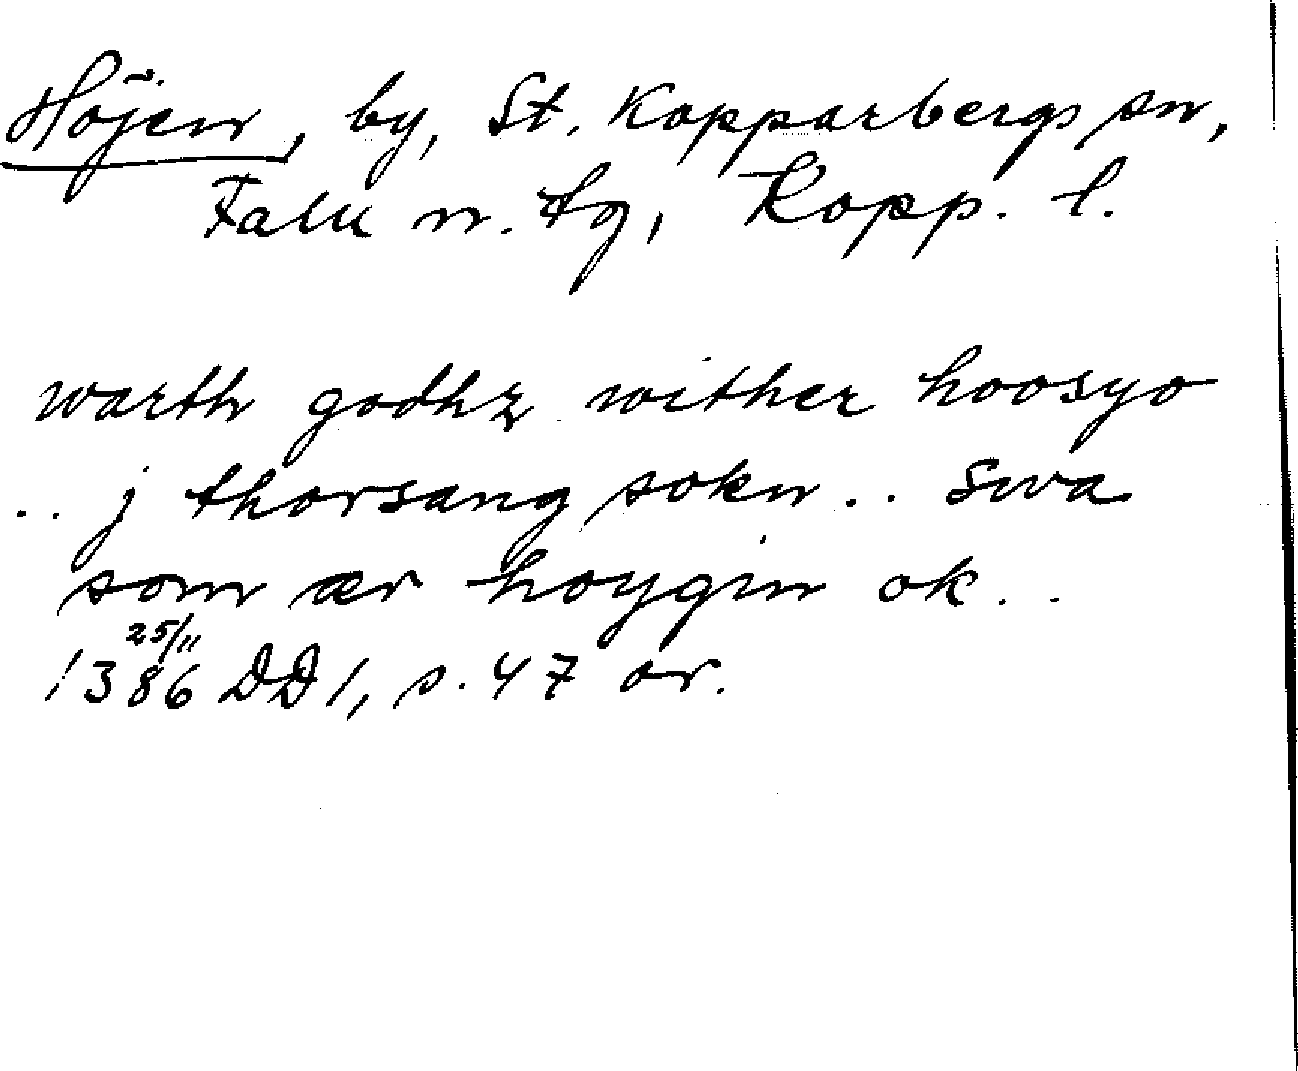 Höjen, by, St. Kopparbergs sn,
Falu n. tg, Kopp. l.
warth godhz wither hoosyo
.. j thorsang sokn .. swa
som ær hoygin ok ..
25/11
1386 DD 1, s. 47 or.